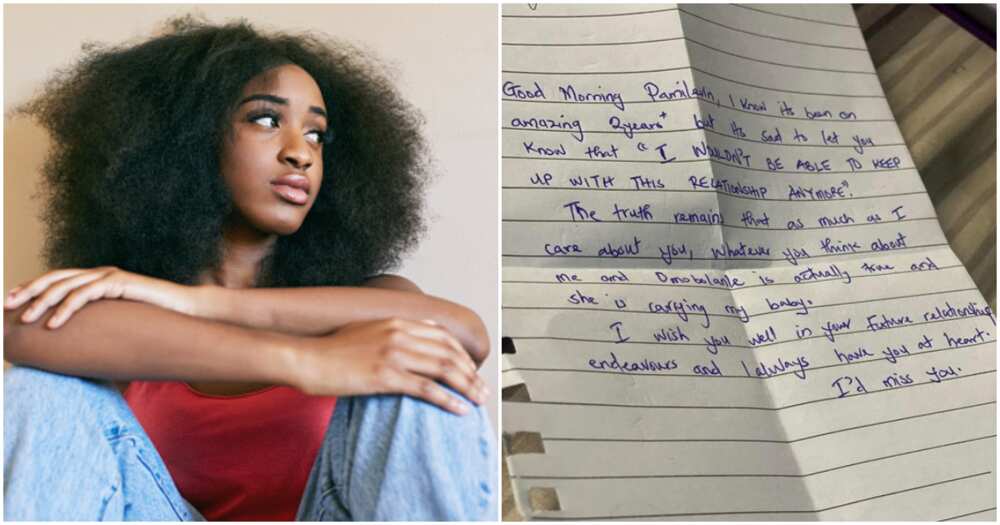 Good Morning Pamilerin, I know its been an
amazing 2years+ but its sad to let you
know that "I WOULDN'T BE ABLE TO KEEP
UP WITH THIS RELATIONSHIP ANYMORE".
The truth remains that as much as I
care about you, whatever you think about
me and Omobolanle is actually true and
she is carrying my baby.
I wish you well in your future relationship
endeavours and I always have you at heart.
I'd miss you.